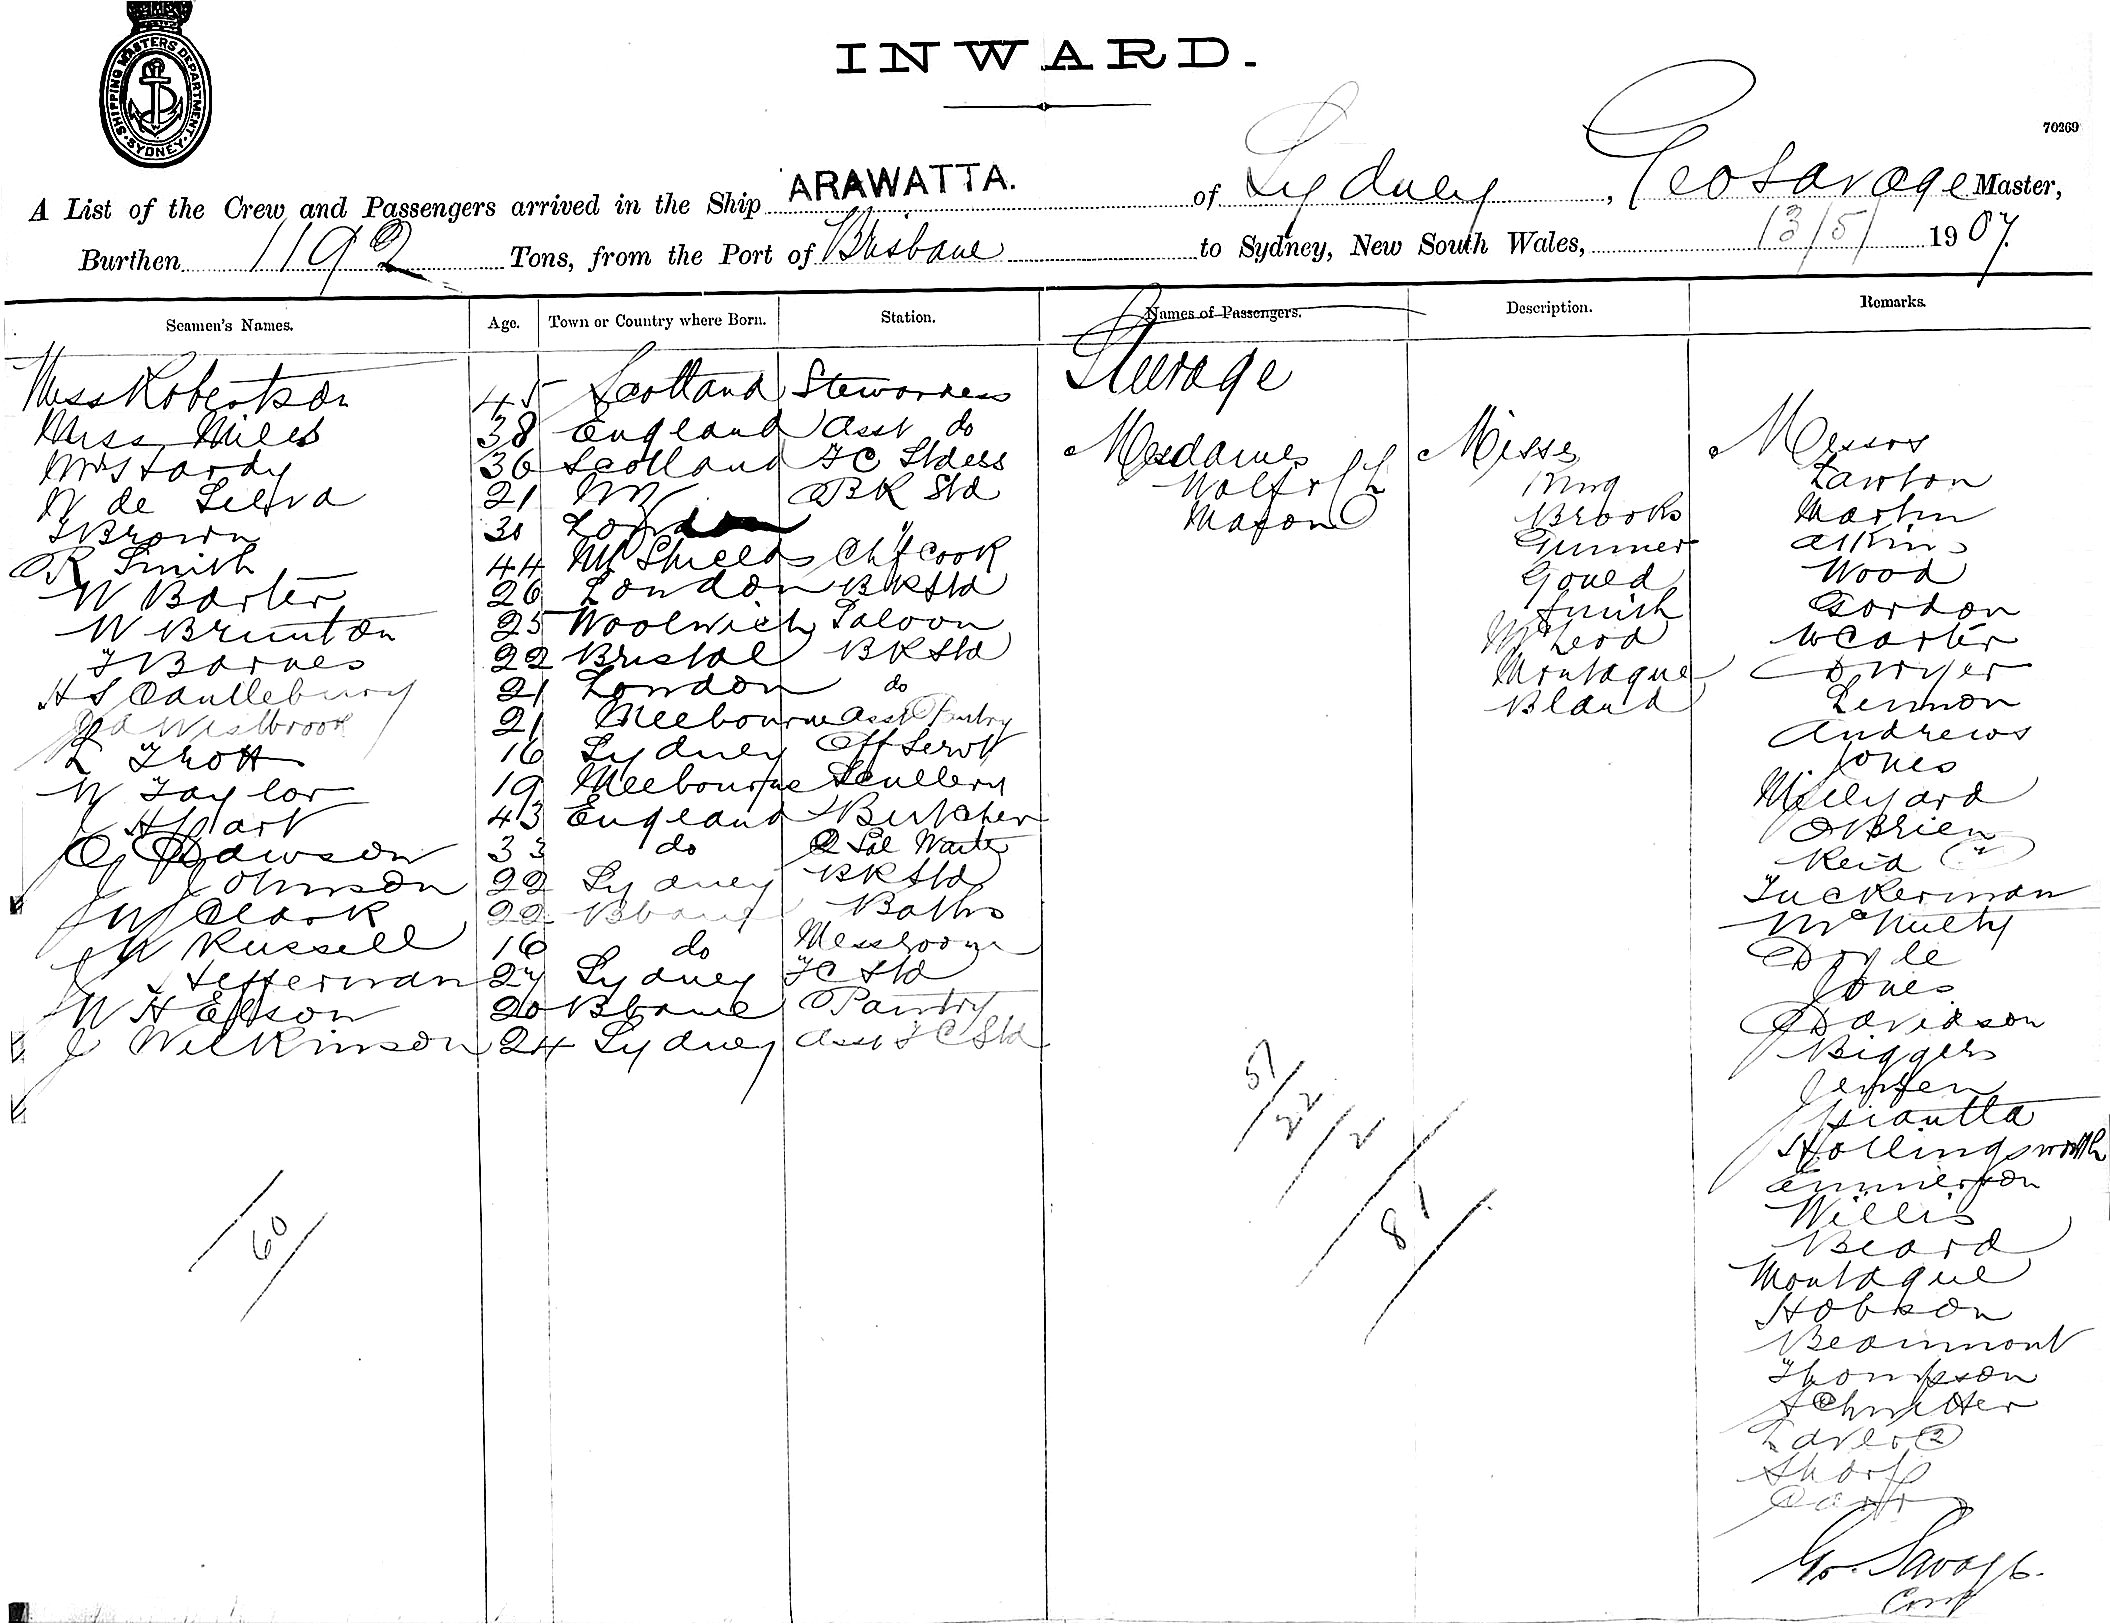 SHIPPING MASTERS DEPARTMENT SYDNEY
INWARD.
70269
A List of the Crew and Passengers arrived in the Ship ARAWATTA. of Sydney, Geo Savage Master,
Burthen 1192 Tons, from the Port of Brisbane to Sydney, New South Wales, 13/5/ 1907.
Seamen's Names. Age. Town or Country where Born. Station. Names of Passengers. Description. Remarks.
Miss Robertson 45 Scotland Stewardess
Miss Miles 38 England Asst do
Mrs Hardy 36 Scotland FC Stdess
W de Silva 21 BK Std
T Brown 30 London "
R Smith 44 Nth Shields Chf Cook
W Barter 26 London BK Std
W Brunton 25 Woolwich Saloon
T Barnes 22 Bristol BK Std
H S Cantlebury 21 London do
Westbrook 21 Melbourne Asst Pantry
L Trott 16 Sydney Off Servt
W Taylor 19 Melbourne Scullery
J Hart 43 England Butcher
G Dawson 33 do 2 Sal Waiter
J Johnson 22 Sydney BK Std
W J Clark 22 Bbane Baths
W Russell 16 do Messroom
J Hefferman 27 Sydney FC Std
W H Elson 20 Bbane Pantry
J Wilkinson 24 Sydney Asst FC Std
60
Steerage
Mesdames
Wolfe
Mason
51
22
2
81
Misses
King
Brooks
Gunner
Gould
Smith
McLeod
Montague
Bland
Messrs
Lawton
Martin
Atkins
Wood
Gordon
W Carter
Dwyer
Lennon
Andrews
Jones
Millyard
O'Brien
Reid
Tuckerman
McNulty
Doyle
Jones
Davidson
Biggers
Jensen
Hollingsworth
Emmerson
Willis
Beard
Montague
Hobson
Beaumont
Thompson
Laver 2
Sharp
Carr
Geo. Savage.